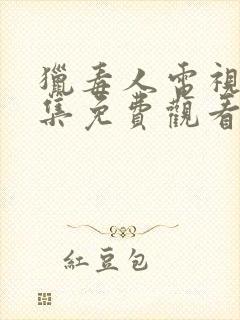 獵毒人電視
集免費觀看
紅豆包